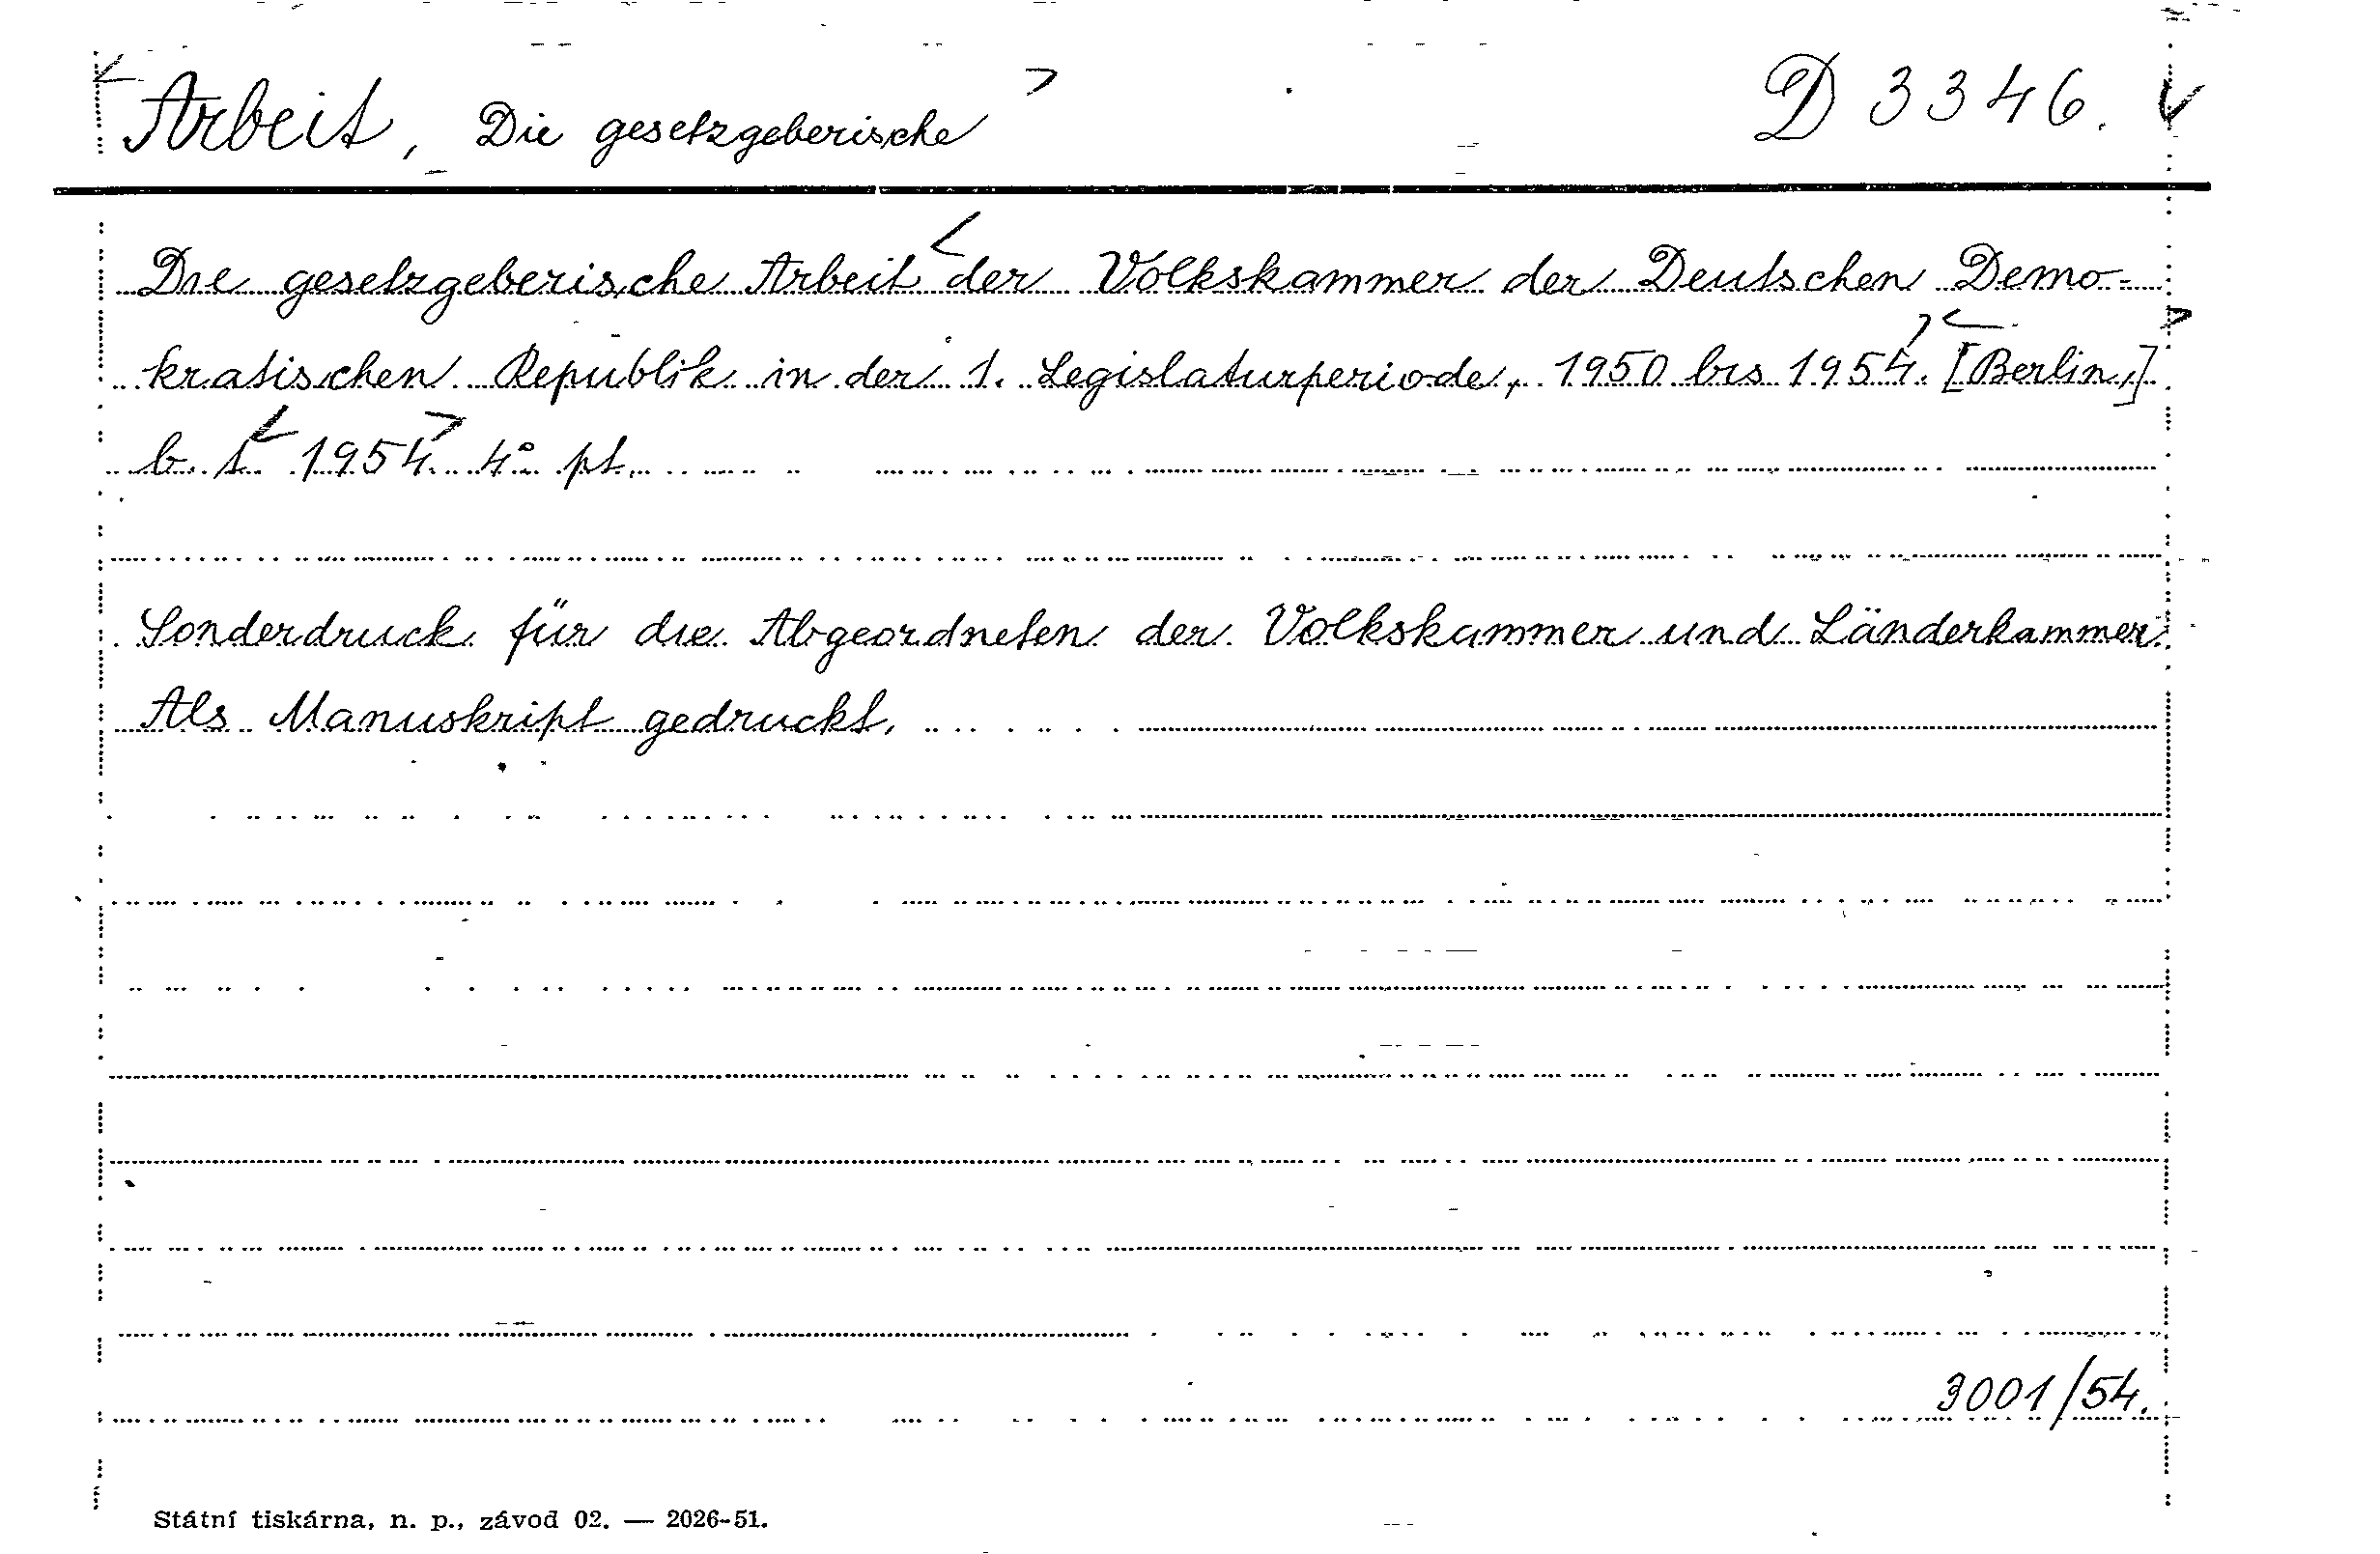 Arbeit, Die gesetzgeberische D 3346.
Die gesetzgeberische Arbeit der Volkskammer der Deutschen Demo-
kratischen Republik in der 1. Legislaturperiode, 1950 bis 1954. [Berlin,]
b. t. 1954. 4° pt.
Sonderdruck für die Abgeordneten der Volkskammer und Länderkammer.
Als Manuskript gedruckt.
3001/54.
Státní tiskárna, n. p., závod 02. — 2026-51.